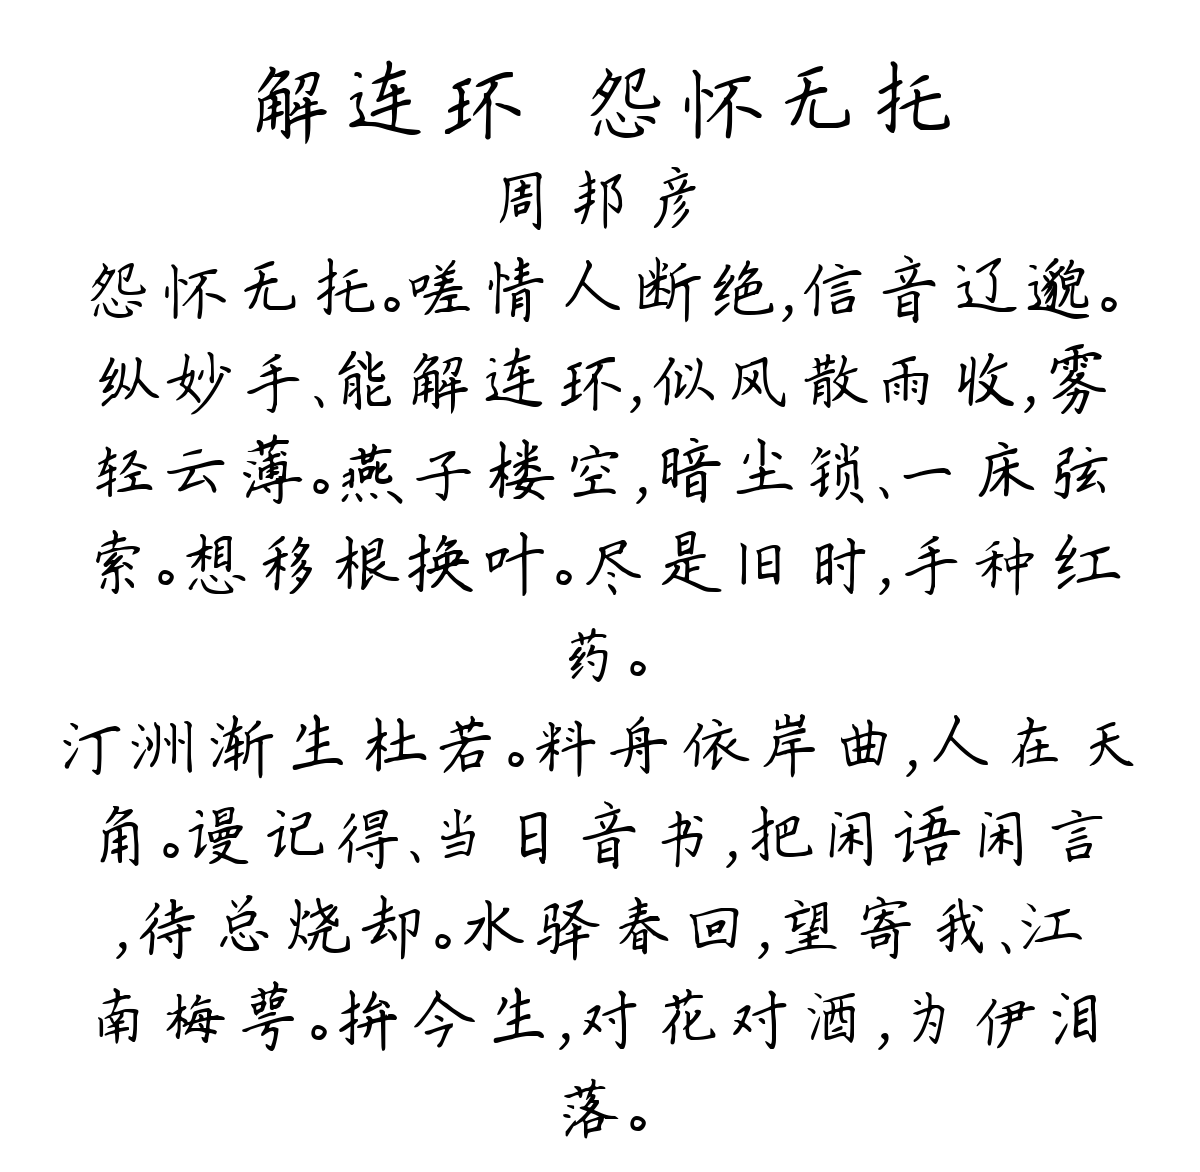 解连环 怨怀无托
周邦彦
怨怀无托。嗟情人断绝,信音辽邈。
纵妙手、能解连环,似风散雨收,雾
轻云薄。燕子楼空,暗尘锁、一床弦
索。想移根换叶。尽是旧时,手种红
药。
汀洲渐生杜若。料舟依岸曲,人在天
角。谩记得、当日音书,把闲语闲言
,待总烧却。水驿春回,望寄我、江
南梅萼。拚今生,对花对酒,为伊泪
落。